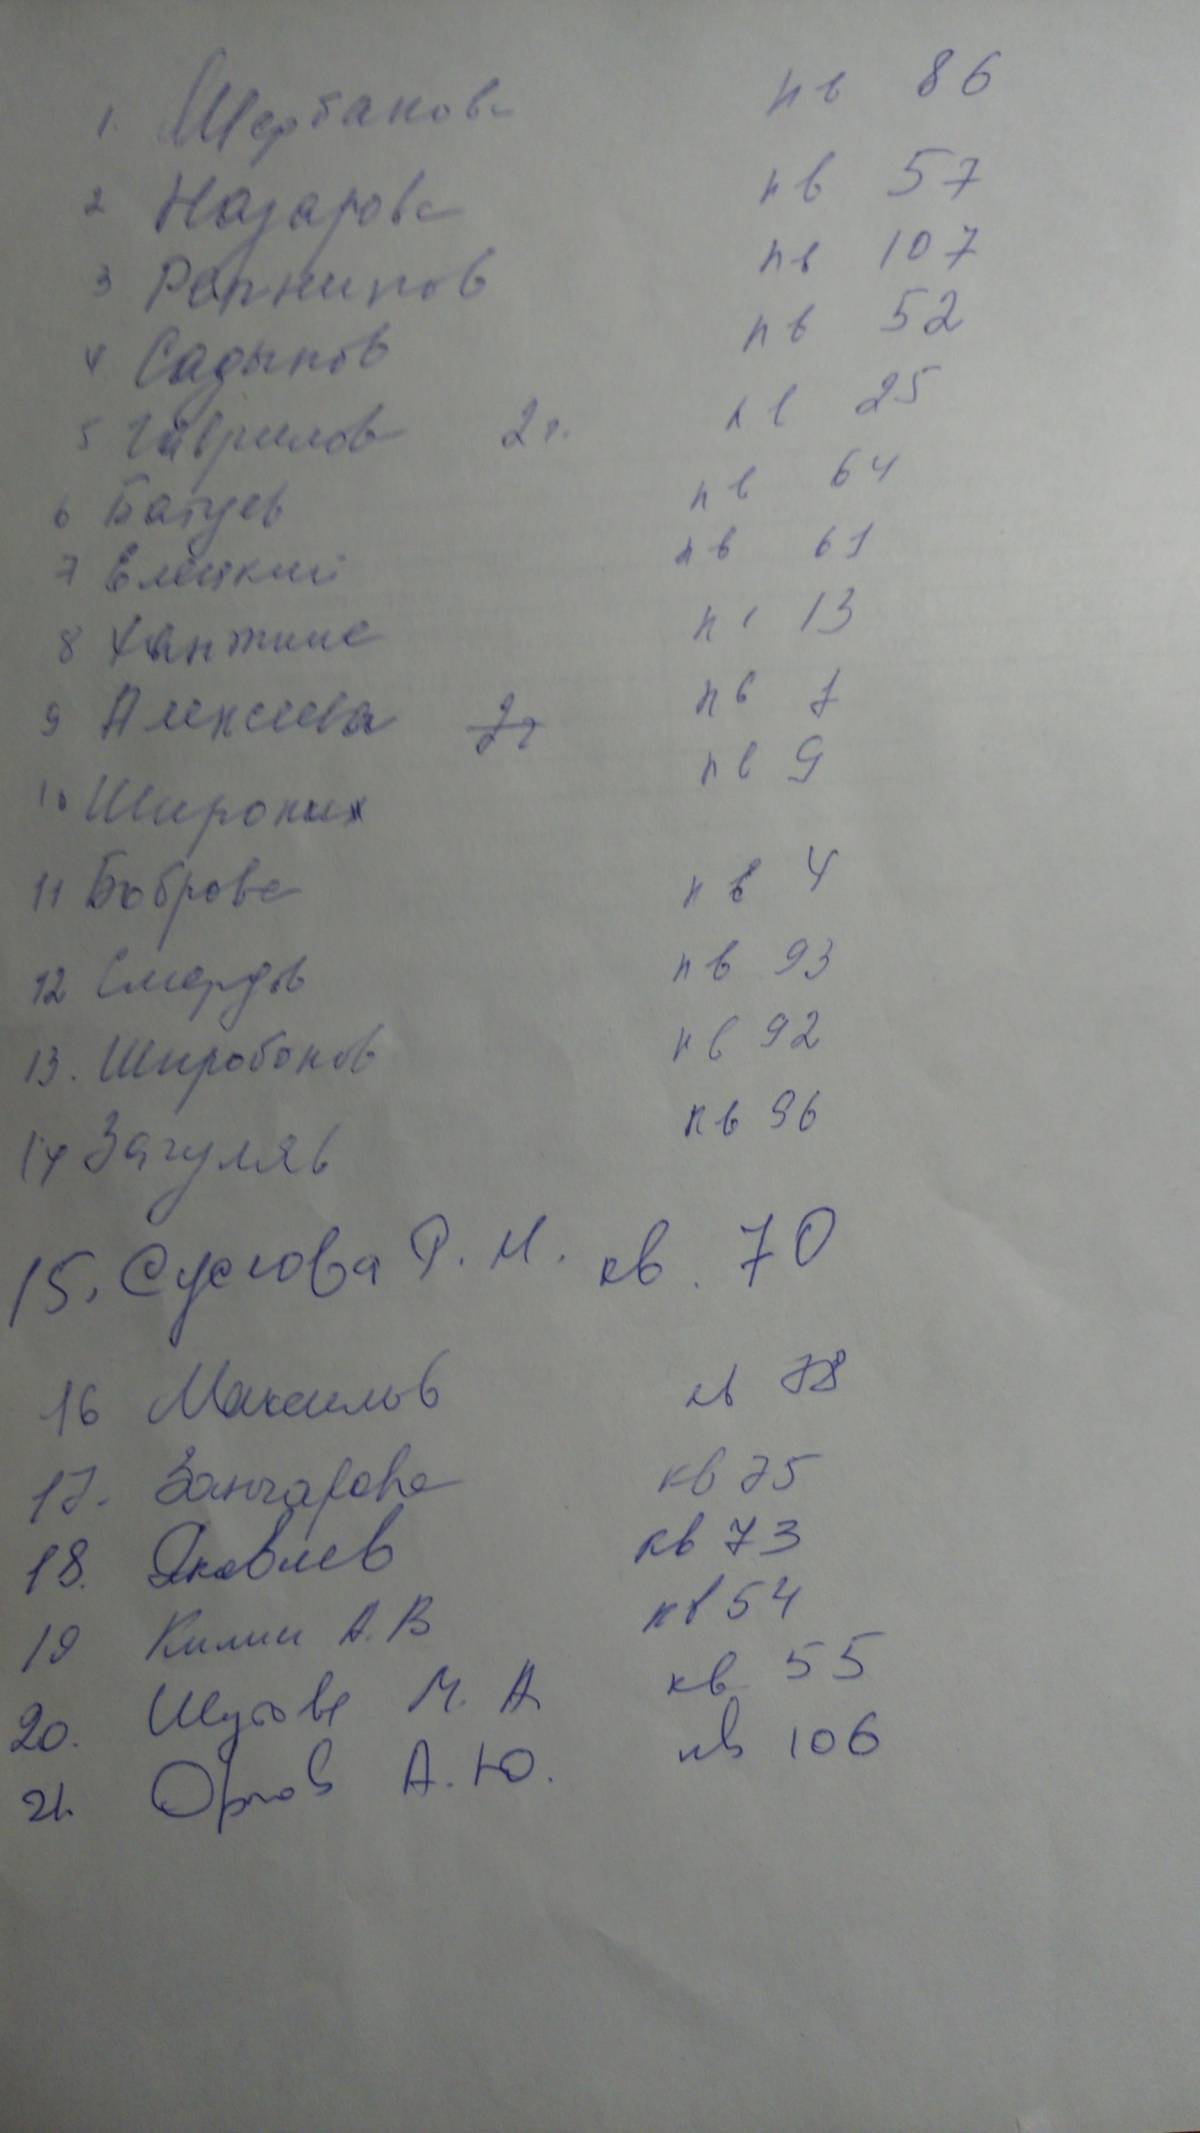 1. Щербакова кв 86
2 Назарова кв 57
3 Репников кв 107
4 Садыков кв 52
5 Гаврилов 2г. кв 25
6 Батуев кв 64
7 кв 61
8 Ханжина кв 13
9 Алексеева кв 7
10 Широких кв 9
11 Боброва кв 4
12 Смердов кв 93
13. Широбоков кв 92
14 Загуляев кв 96
15. Суслова Р. М. кв. 70
16 Максимов кв 78
17. кв 75
18. Яковлев кв 73
19 Килин А. В кв 54
20. Шутова М. А кв 55
21. Орлов А. Ю. кв 106